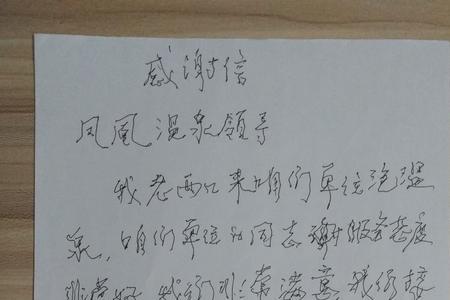 感谢信
凤凰温泉領导
我老两口来咱们单位泡温
泉，咱们单位的同志谢服务态度
非常好，我们非常满意我们接